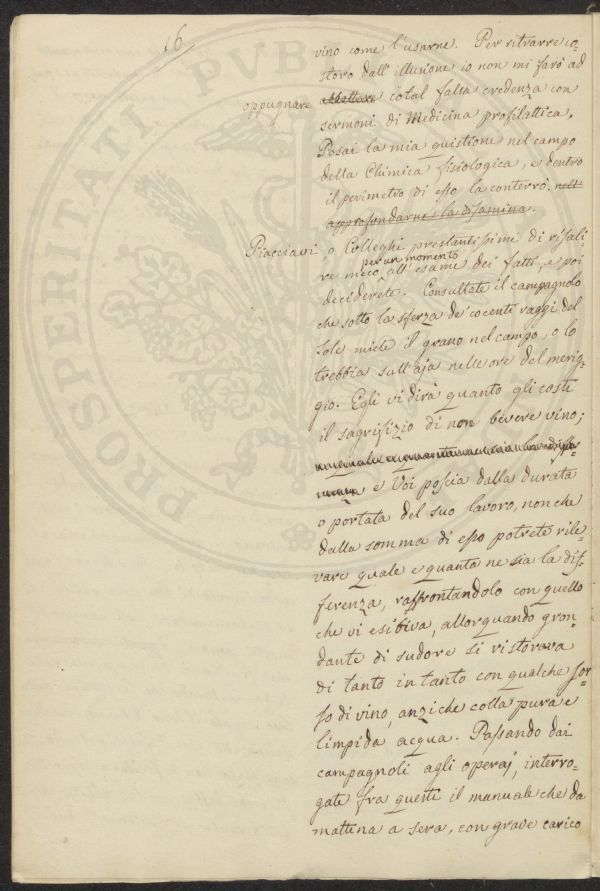 16
vino come l'usarne. Per ritrarre co-
storo dall'illusione io non mi farò ad
oppugnare abbattere cotal falsa credenza con
sermoni di Medicina profilattica.
Posai la mia quistione nel campo
della Chimica fisiologica, e dentro
il perimetro di esso la conterrò, nell'
approfondarne la disamina.
Piacciavi o Colleghi prestantissimi di risali-
per un momento
re meco all'esame dei fatti, e poi
deciderete. Consultate il campagnolo
che sotto la sferza de' cocenti raggi del
Sole miete il grano nel campo, o lo
trebbia sull'aja nelle ore del merig-
gio. Egli vi dirà quanto gli costi
il sagrifizio di non bevere vino;
e Voi poscia dalla durata
o portata del suo lavoro, non che
dalla somma di esso potrete rile-
vare quale e quanta ne sia la dif-
ferenza, raffrontandolo con quello
che vi esibiva, allorquando gron-
dante di sudore si ristorava
di tanto in tanto con qualche sor-
so di vino, anziche colla pura e
limpida acqua. Passando dai
campagnoli agli operaj, interro-
gate fra questi il manuale che da
mattina a sera, con grave carico
PROSPERITATI PUB